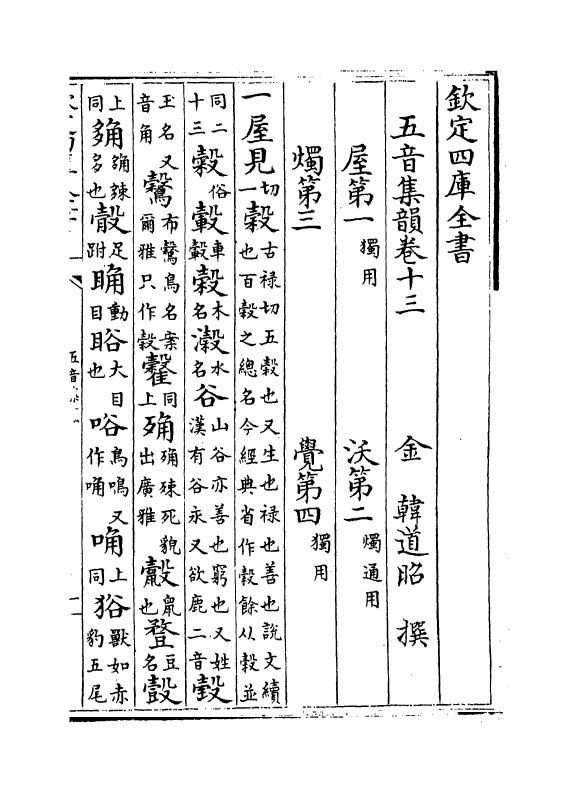 欽定四庫全書
五音集韻卷十三 金 韓道昭 撰
屋第一獨用 沃第二燭通用
燭第三 覺第四獨用
一屋見切一穀古祿切五穀也又生也祿也善也說文續也百穀之總名今經典省作穀餘从穀並
同二十三糓俗轂車轂榖木名瀔水名谷山谷亦善也窮也又姓漢有谷永又欲鹿二音瑴
玉名又音角布鳥名案爾雅只作穀同上殐死貌出廣雅鼠也豋豆名
上同多也足跗目動大目也唂鳥鳴又作唃唃上同㹱獸如赤豹五尾